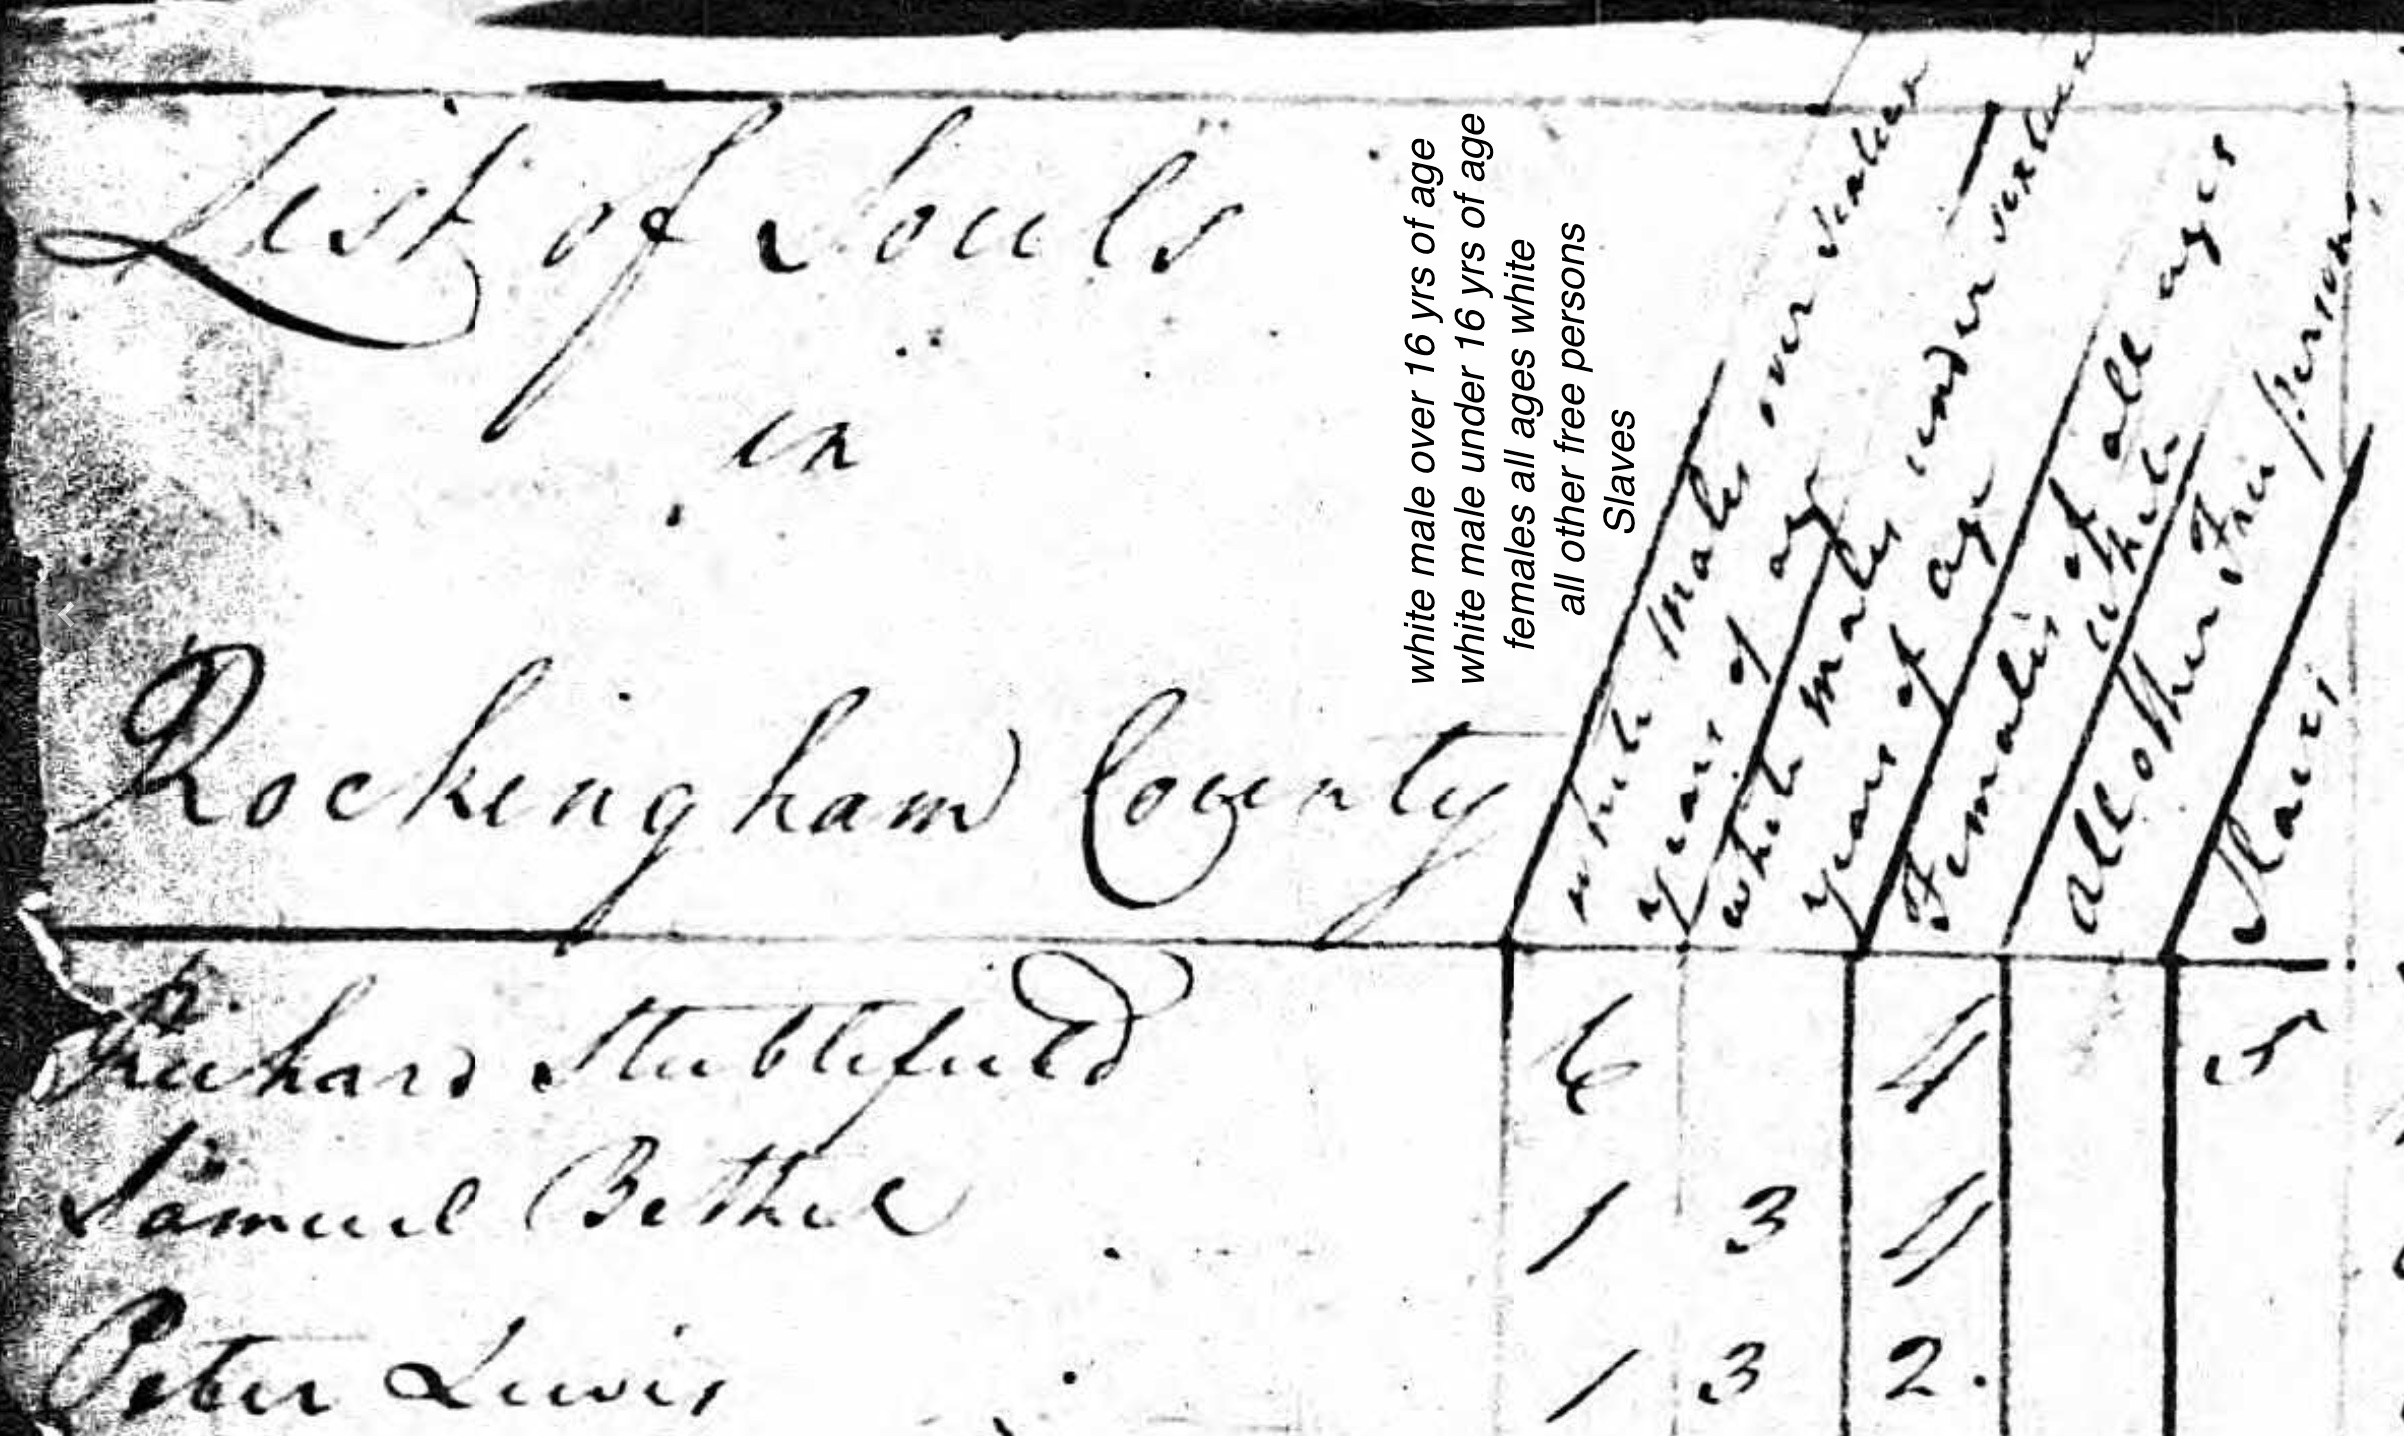 List of Souls
in
Rockingham County
white male over 16 yrs of age
white male under 16 yrs of age
females all ages white
all other free persons
Slaves
white males over sixteen
years of age
white males under sixteen
years of age
Females of all ages
white
all other Free persons
Slaves
Richard Stublefield 6 4 5
Samuel Bethel 1 3 4
Peter Lewis 1 3 2.